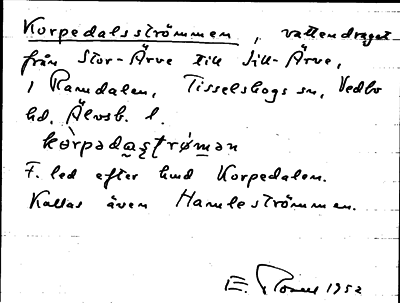 Korpedalsströmmen, vattendraget
från Stor-Ärve till Lill-Ärve,
i Ramdalen, Tisselskogs sn, Vedbo
hd, Älvsb. l.
kòrpadaʂʈrǿman
F. led efter hmd Korpedalen.
Kallas även Hamleströmmen.
E. 1952